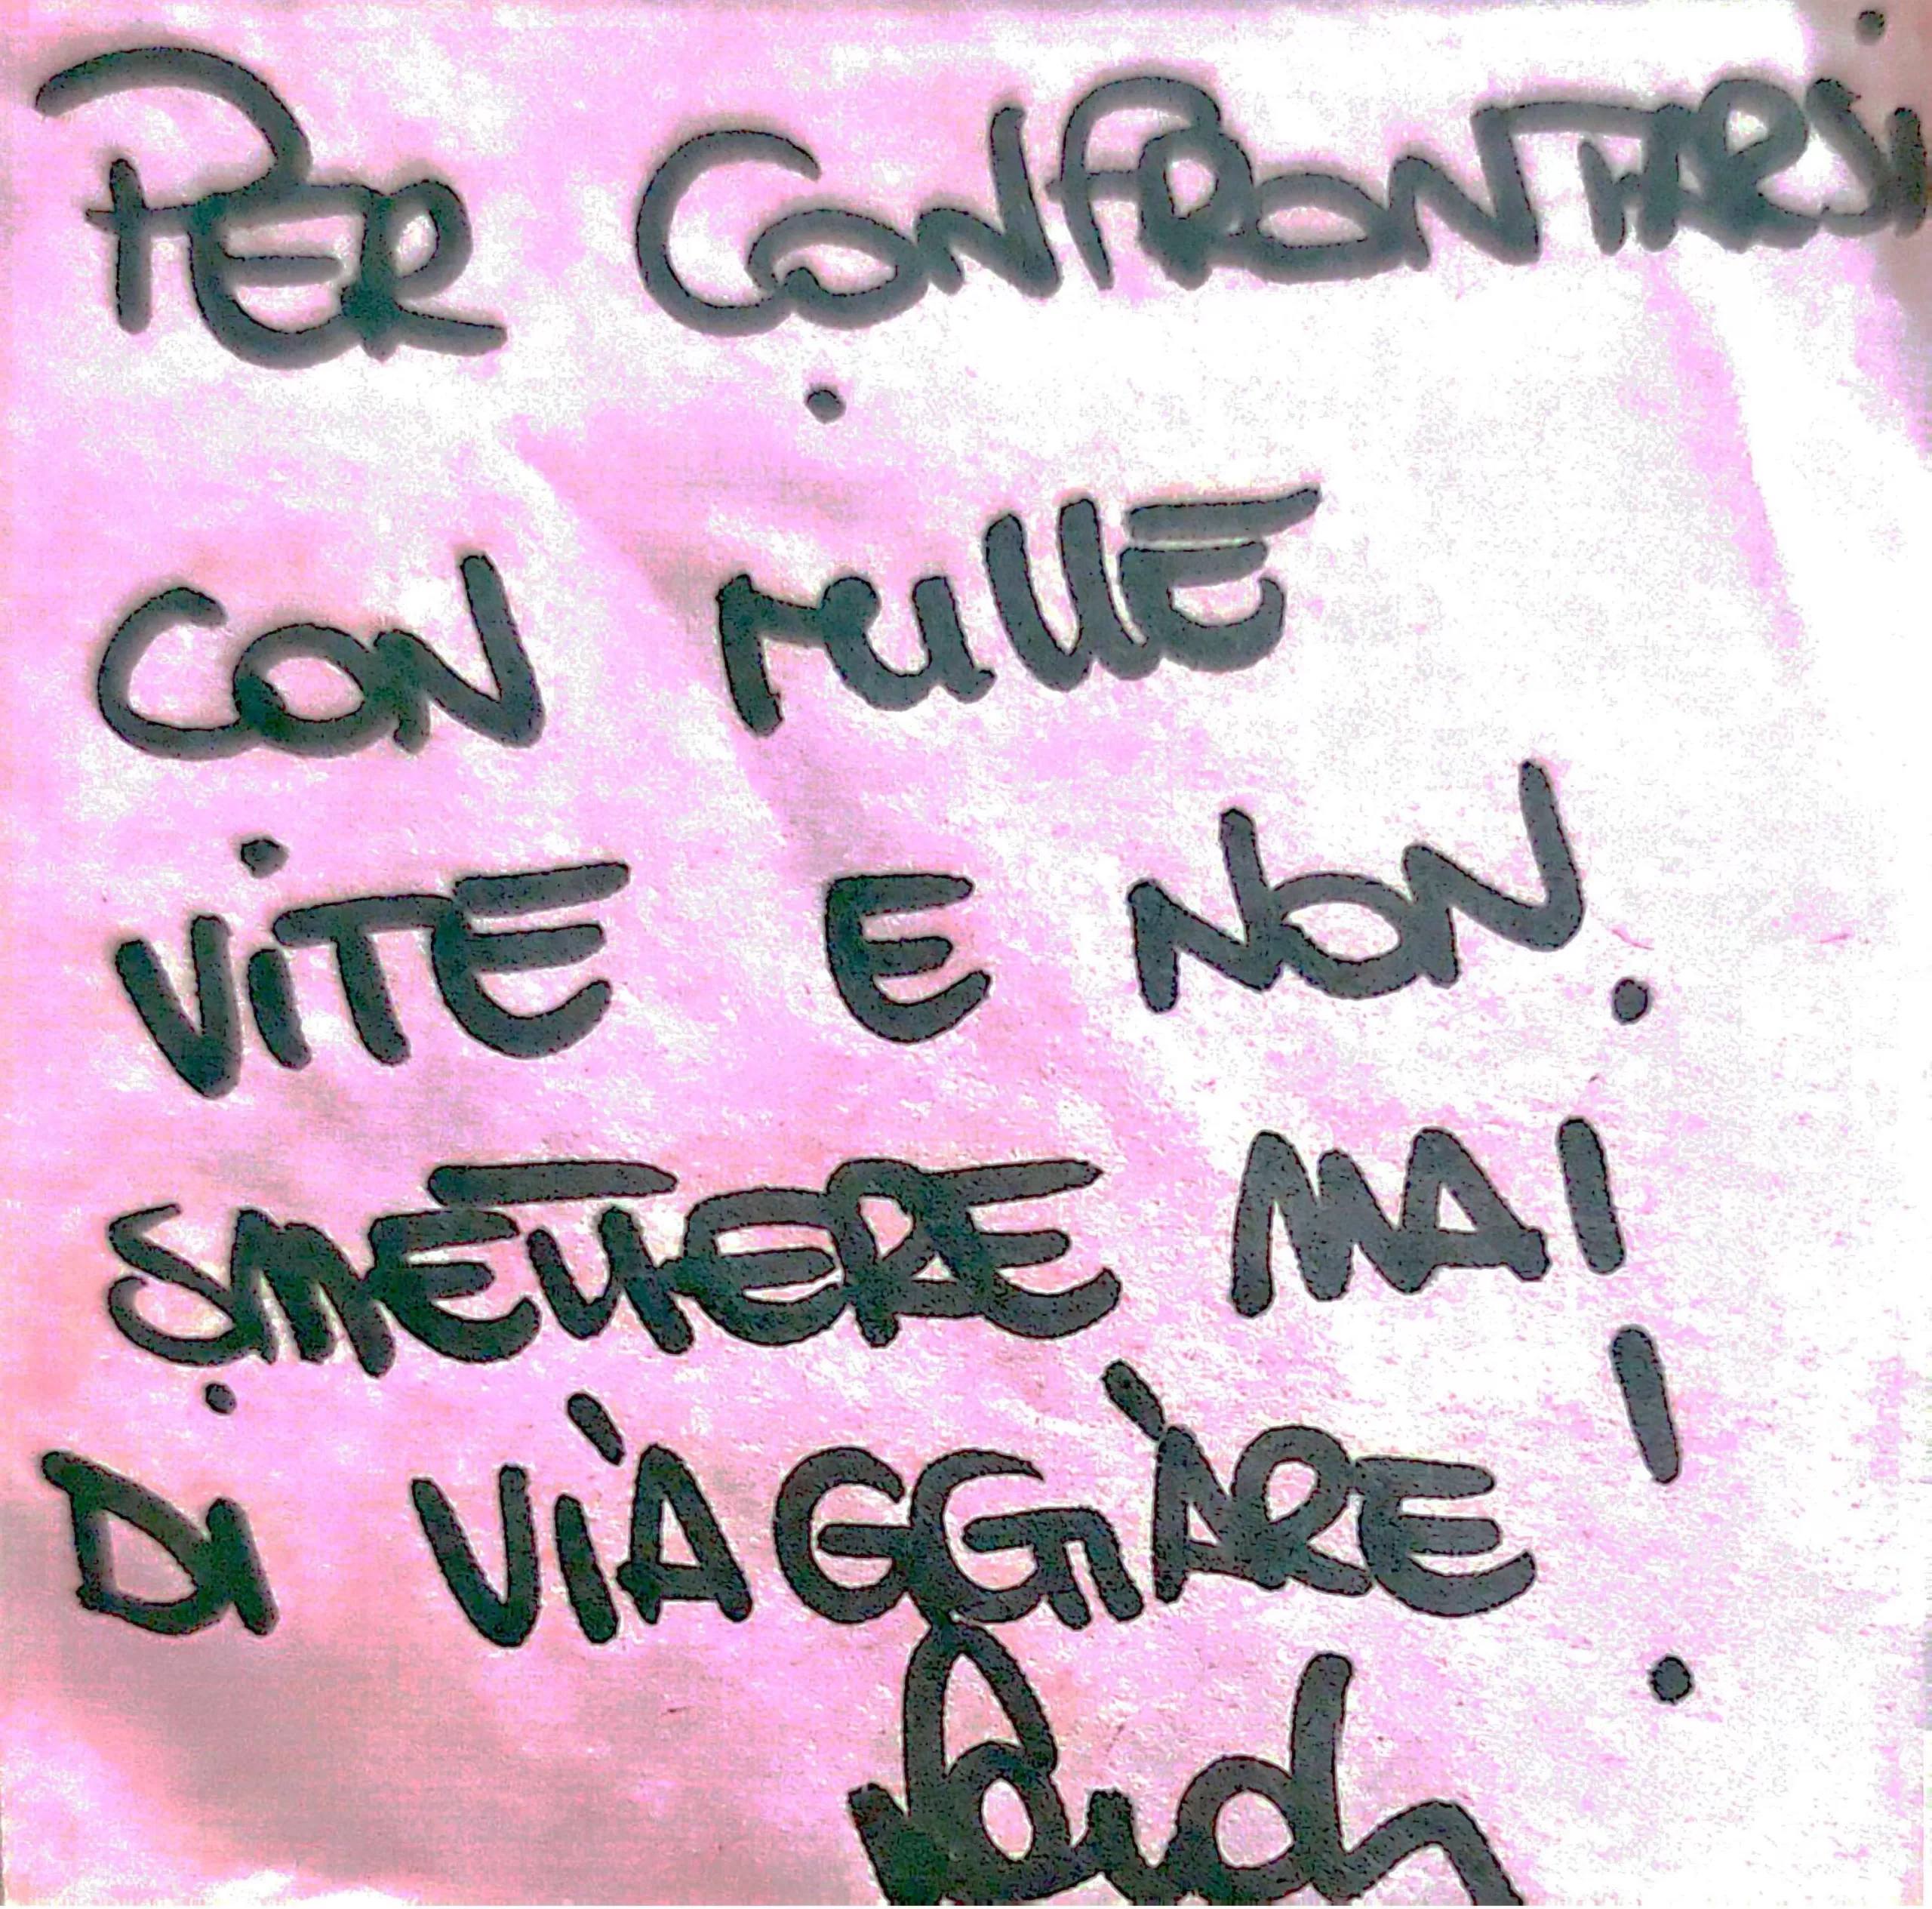 PER CONFRONTARSI
CON MILLE
VITE E NON
SMETTERE MAI
DI VIAGGIARE!